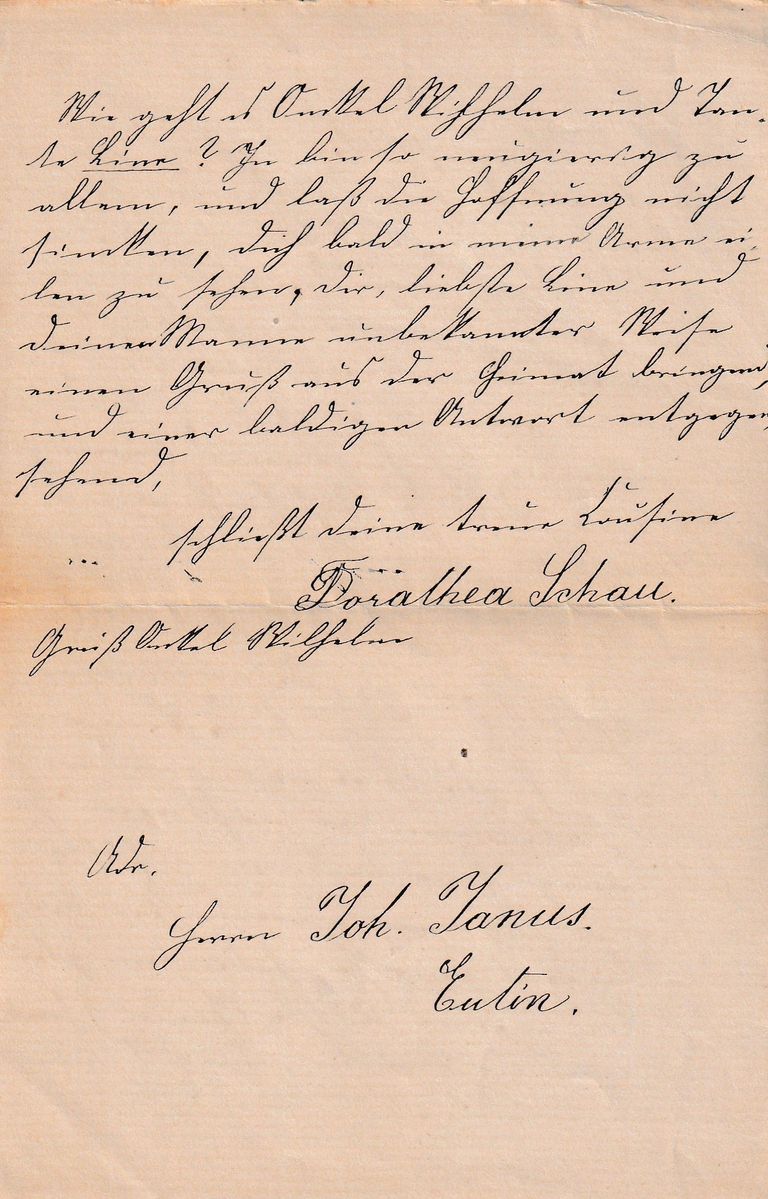 Wie geht es Onkel Wilhelm und Tan-
te Line? In bin so neugierig zu
allem, und laß die Hoffnung nicht
sincken, dich bald in meine Arme ei-
len zu sehen, dir, liebste Line und
deinen Manne unbekannter Weise
einen Gruß aus der Heimat bringend,
und einer baldigen Antwort entgegen
sehend,
schließt deine treue Cousine
Dorathea Schau.
Gruß Onkel Wilhelm
Adr.
Herrn Joh. Janus.
Eutin.